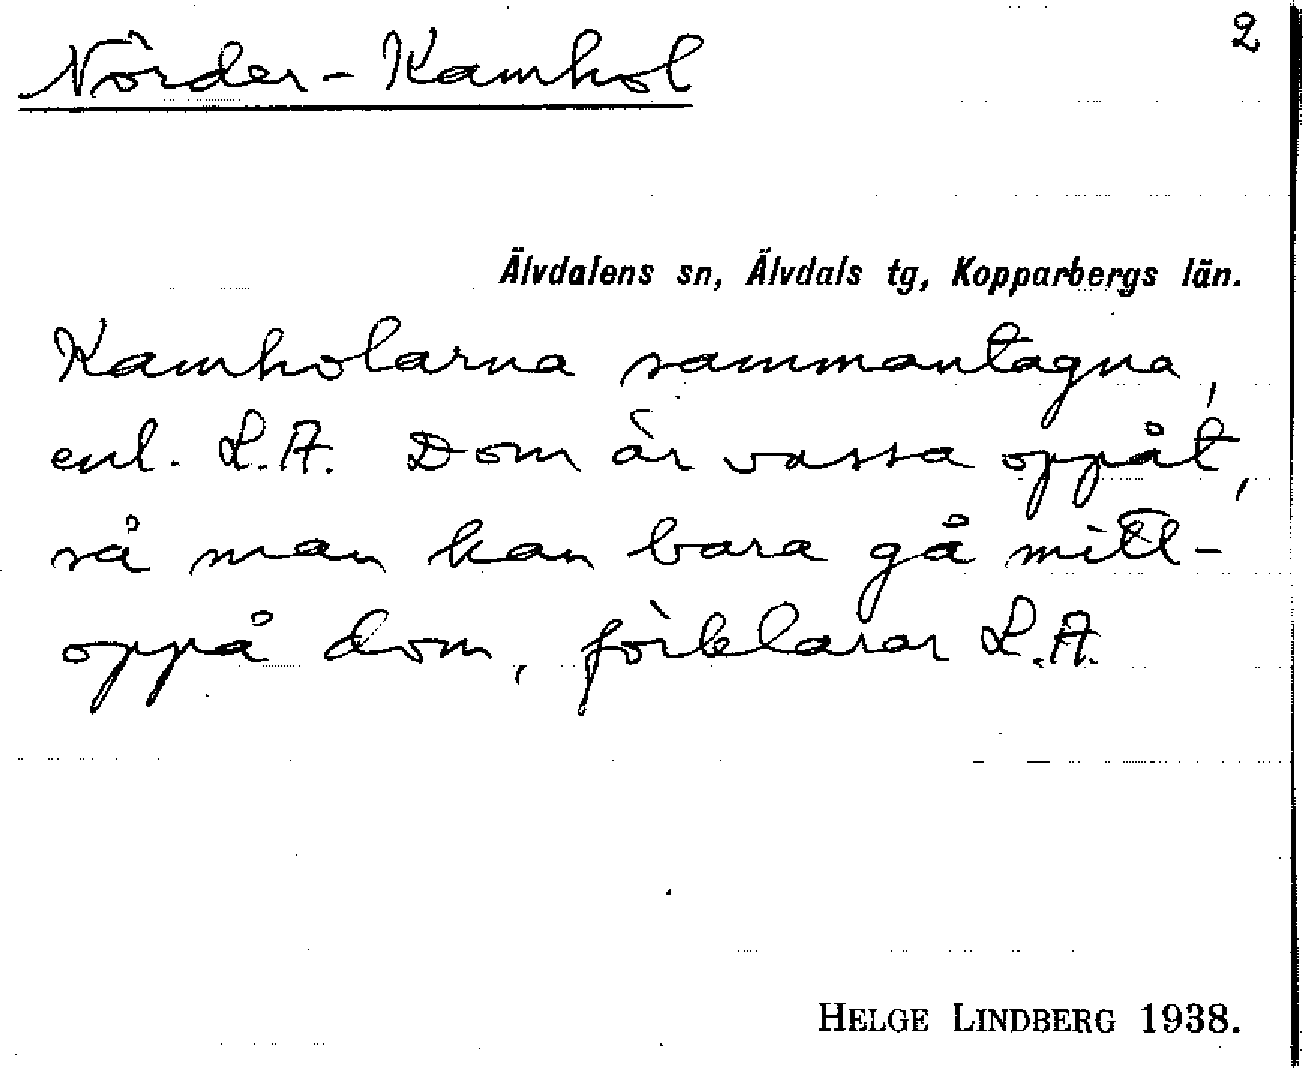 2
Nörder-Kamhol
Älvdalens sn, Älvdals tg, Kopparbergs län.
Kamholarna sammantagna,
enl. L.A. Dom är vassa oppåt,
så man kan bara gå mitt-
oppå dom, förklarar L.A.
HELGE LINDBERG 1938.